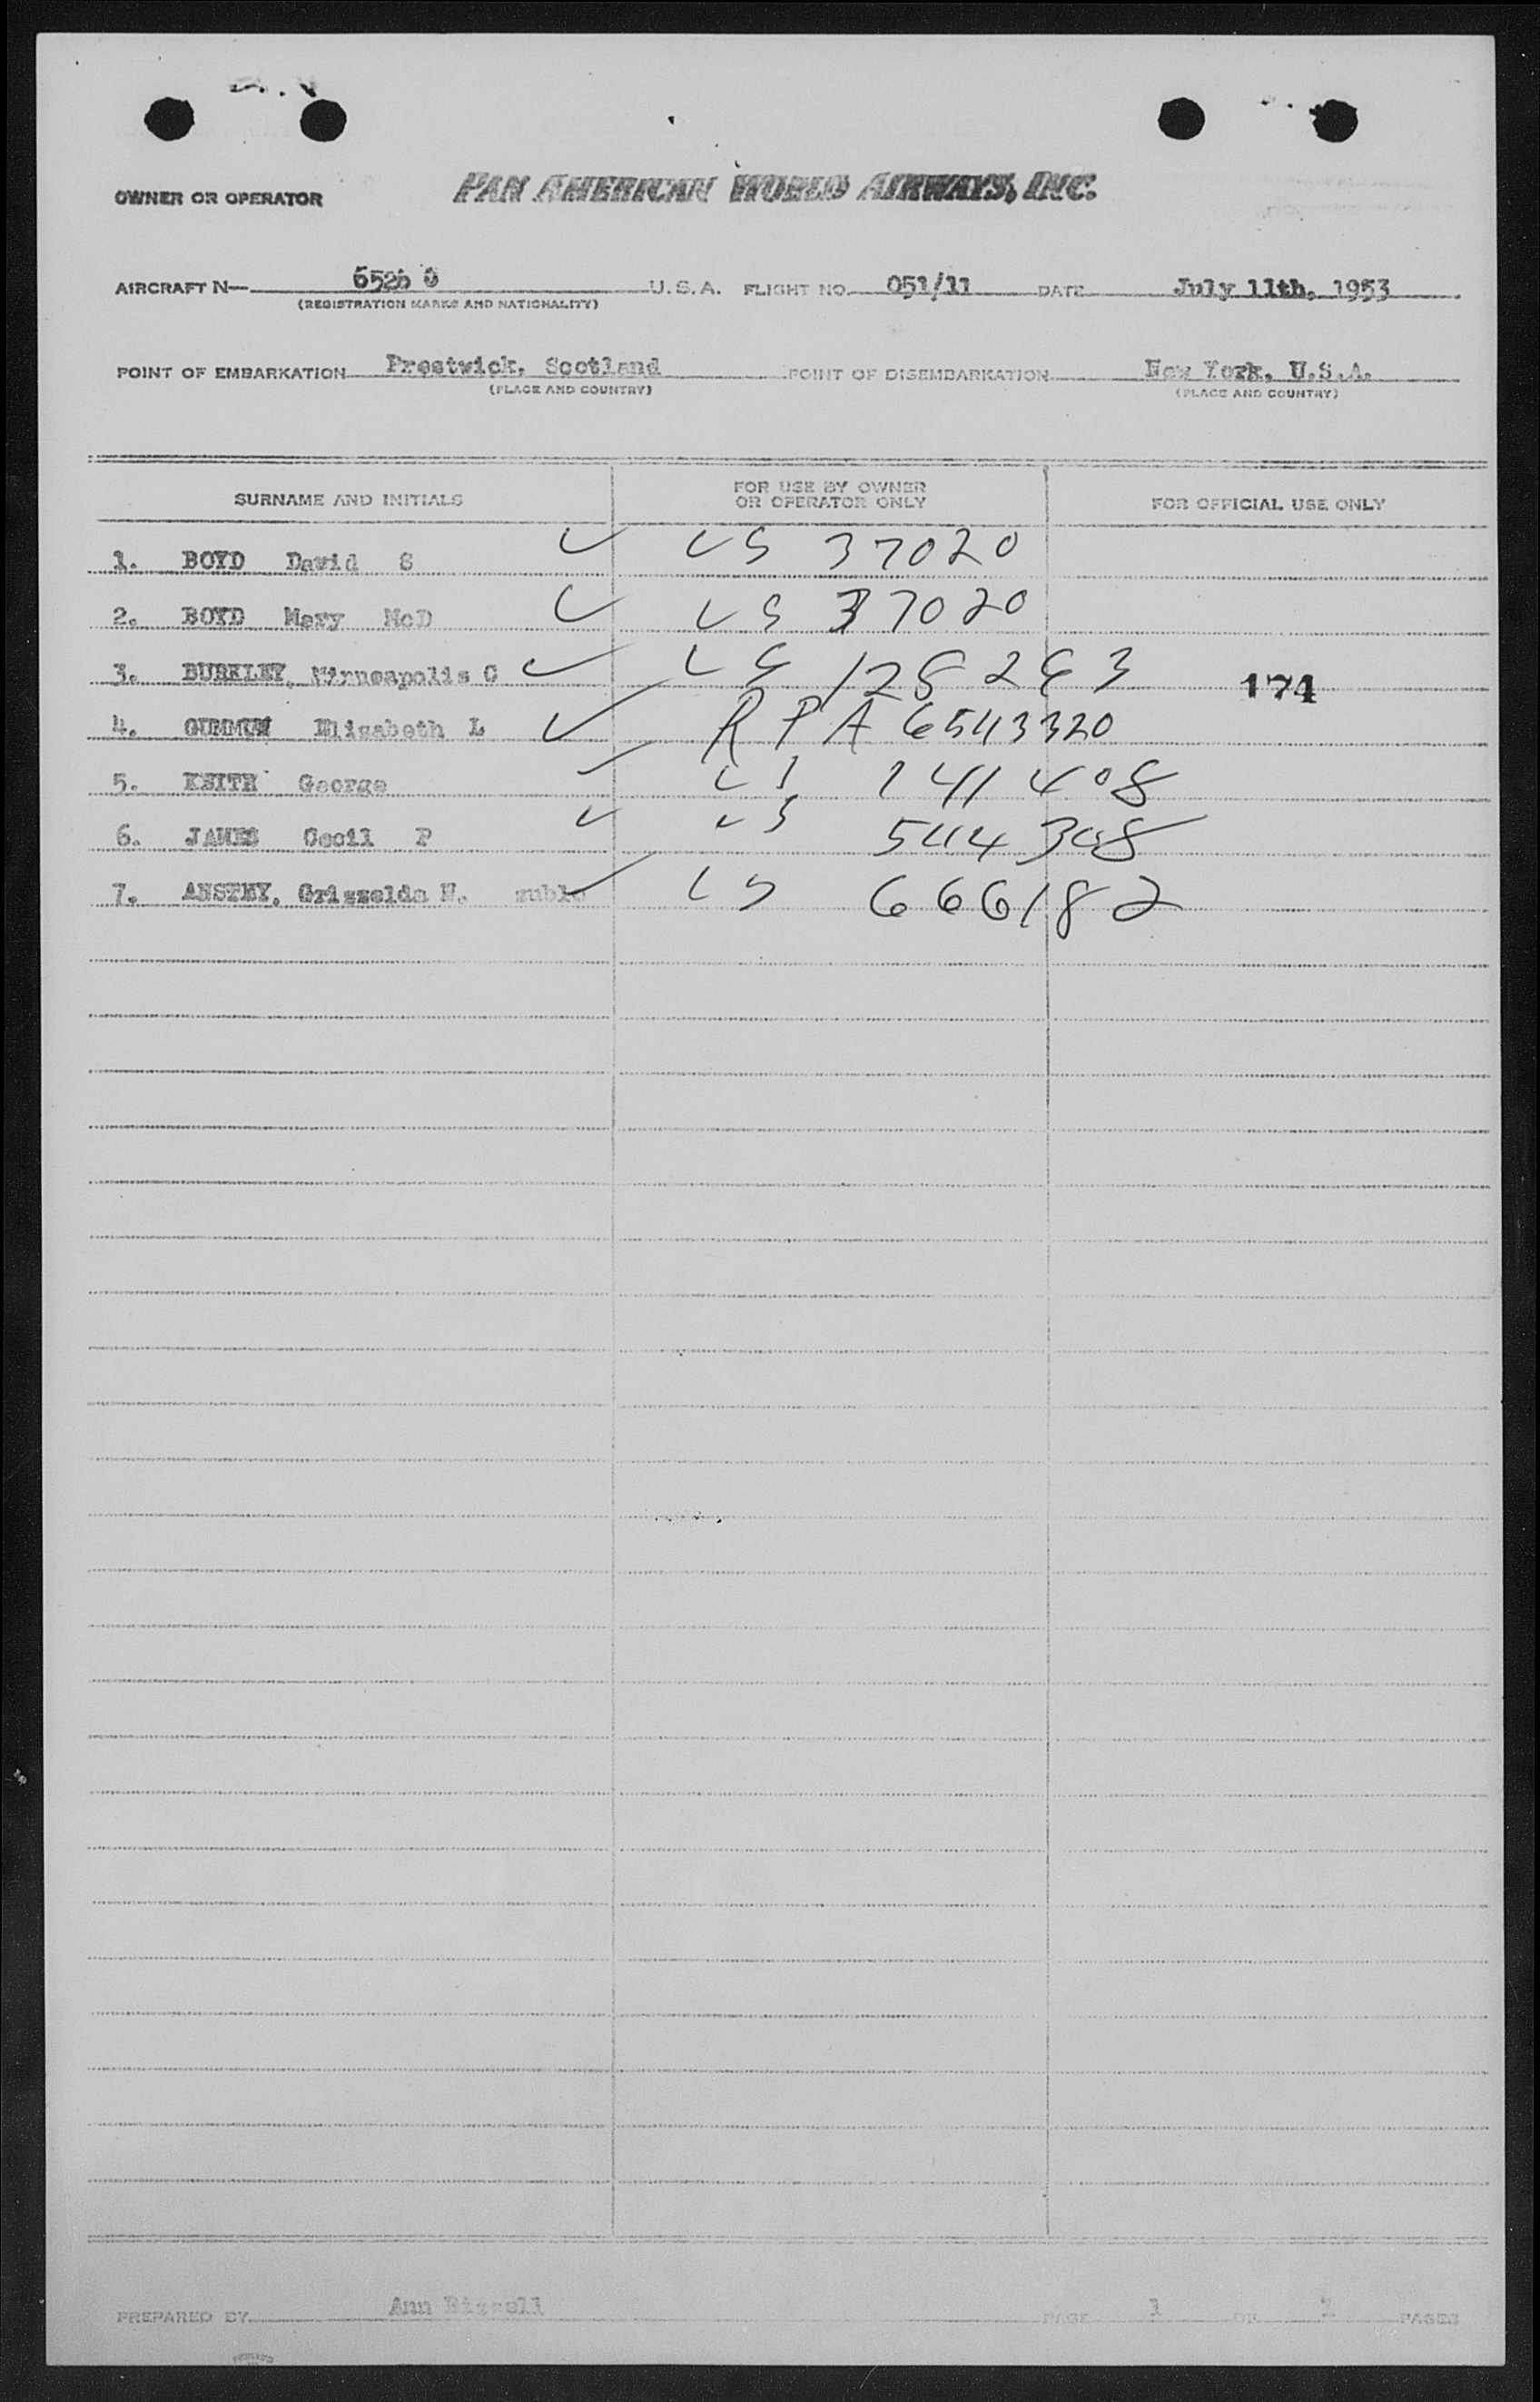 OWNER OR OPERATOR PAN AMERICAN WORLD AIRWAYS, INC.
AIRCRAFT N— 6526 U.S.A. FLIGHT NO. 051/11 DATE July 11th, 1953
(REGISTRATION MARKS AND NATIONALITY)
POINT OF EMBARKATION Prestwick, Scotland POINT OF DISEMBARKATION New York, U.S.A.
(PLACE AND COUNTRY) (PLACE AND COUNTRY)
SURNAME AND INITIALS FOR USE BY OWNER OR OPERATOR ONLY FOR OFFICIAL USE ONLY
1. BOYD David S ✓ US 37020
2. BOYD Mary McD ✓ US 37020
3. BURKLEY, Minneapolis C ✓ US 128263 174
4. Elizabeth L ✓ RPA 6543320
5. KEITH George ✓ US 141408
6. JAMES Cecil P ✓ US 544308
7. ANSTEY, Grizzelda N. ✓ US 666182
PREPARED BY Ann PAGE 1 OF PAGES